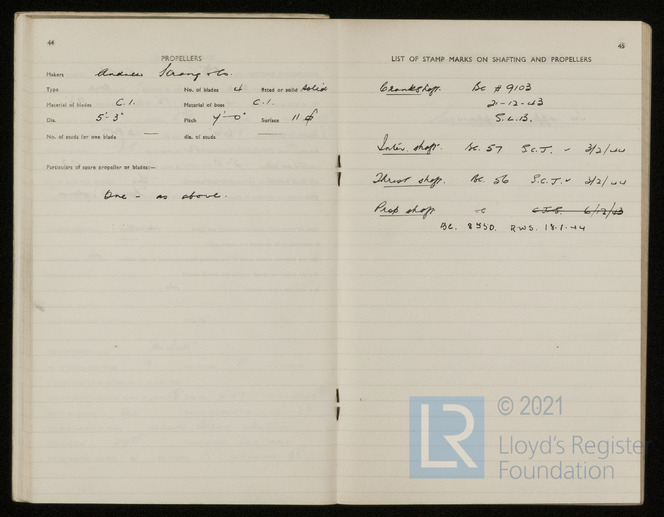 44
PROPELLERS
Makers Andrew Strang & Co.
Type No. of blades 4 fitted or solid Solid
Material of blades C.I. Material of boss C.I.
Dia. 5'-3" Pitch 4'-0" Surface 11
No. of studs for one blade — dia. of studs —
Particulars of spare propeller or blades:—
One - as above.
45
LIST OF STAMP MARKS ON SHAFTING AND PROPELLERS
Crankshaft. BC # 9103
21-12-43
S.L.B.
Inter. shaft. BC. 57 S.C.J. - 3/2/44
Thrust shaft. BC. 56 S.C.J. - 3/2/44
Prop shaft C.J.S. 6/12/43
BC. 8550. RWS. 18.1.44
LR
© 2021
Lloyd's Register
Foundation